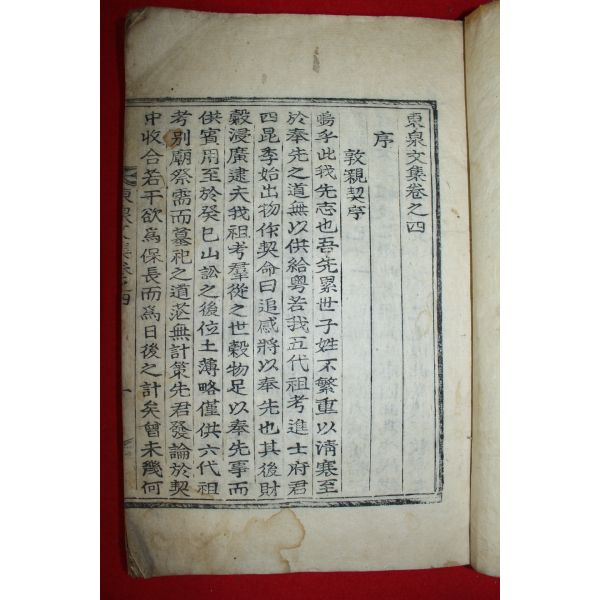 東泉文集卷之四
序
敦親契序
嗚乎此我先志也吾先累世子姓不繁重以清寒至
於奉先之道無以供給粤若我五代祖考進士府君
四昆季始出物作契命曰追感將以奉先也其後財
穀浸廣逮夫我祖考羣從之世穀物足以奉先事而
供賓用至於癸巳山訟之後位土薄略僅供六代祖
考別廟祭需而墓祀之道茫無計策先君發論於契
中收合若干欲爲保長而爲日後之計矣曾未幾何
東泉文集卷之四 一